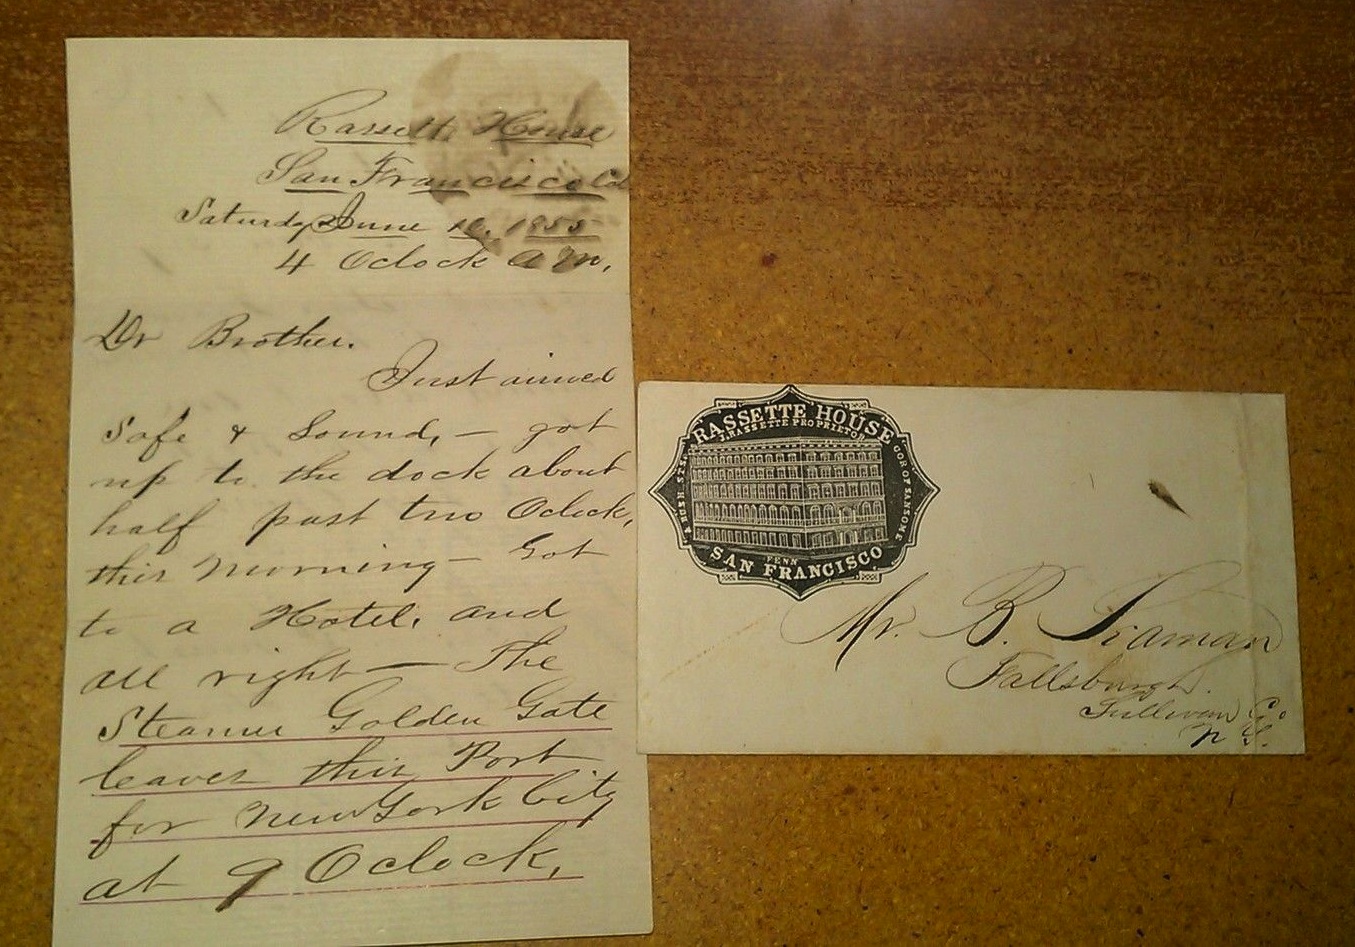 Rassett House
San Francisco Cal
Saturday June 16, 1855
4 Oclock A M.
Dr Brother.
Just arrived
Safe & Sound, — got
up to the dock about
half past two Oclock,
this morning — Got
to a Hotel, and
all right — The
Steamer Golden Gate
leaves this Port
for New York City
at 9 Oclock,
RASSETTE HOUSE
J. RASSETTE PROPRIETOR
COR OF SANSOME
& BUSH STS.
SAN FRANCISCO
Mr. B. Seaman
Fallsburgh.
Sullivan Co
N Y.